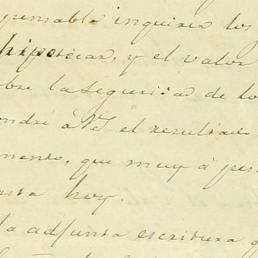 pensable inquirir los
hipotecar, y el valor
bre la seguridad de lo
ondré à V. el resultado
mento, que muy á pes
asta hoy.
la adjunta escritura q